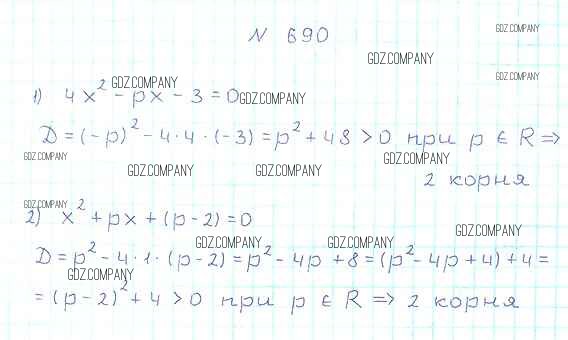 N 690
GDZ.COMPANY
GDZ.COMPANY
GDZ.COMPANY
GDZ.COMPANY
1) 4x² - px - 3 = 0 GDZ.COMPANY
D = (-p)² - 4·4·(-3) = p² + 48 > 0 при p ∈ R =>
GDZ.COMPANY GDZ.COMPANY
GDZ.COMPANY GDZ.COMPANY
2 корня
GDZ.COMPANY
2) x² + px + (p-2) = 0
GDZ.COMPANY
GDZ.COMPANY GDZ.COMPANY
D = p² - 4·1·(p-2) = p² - 4p + 8 = (p² - 4p + 4) + 4 =
GDZ.COMPANY
= (p-2)² + 4 > 0 при p ∈ R => 2 корня